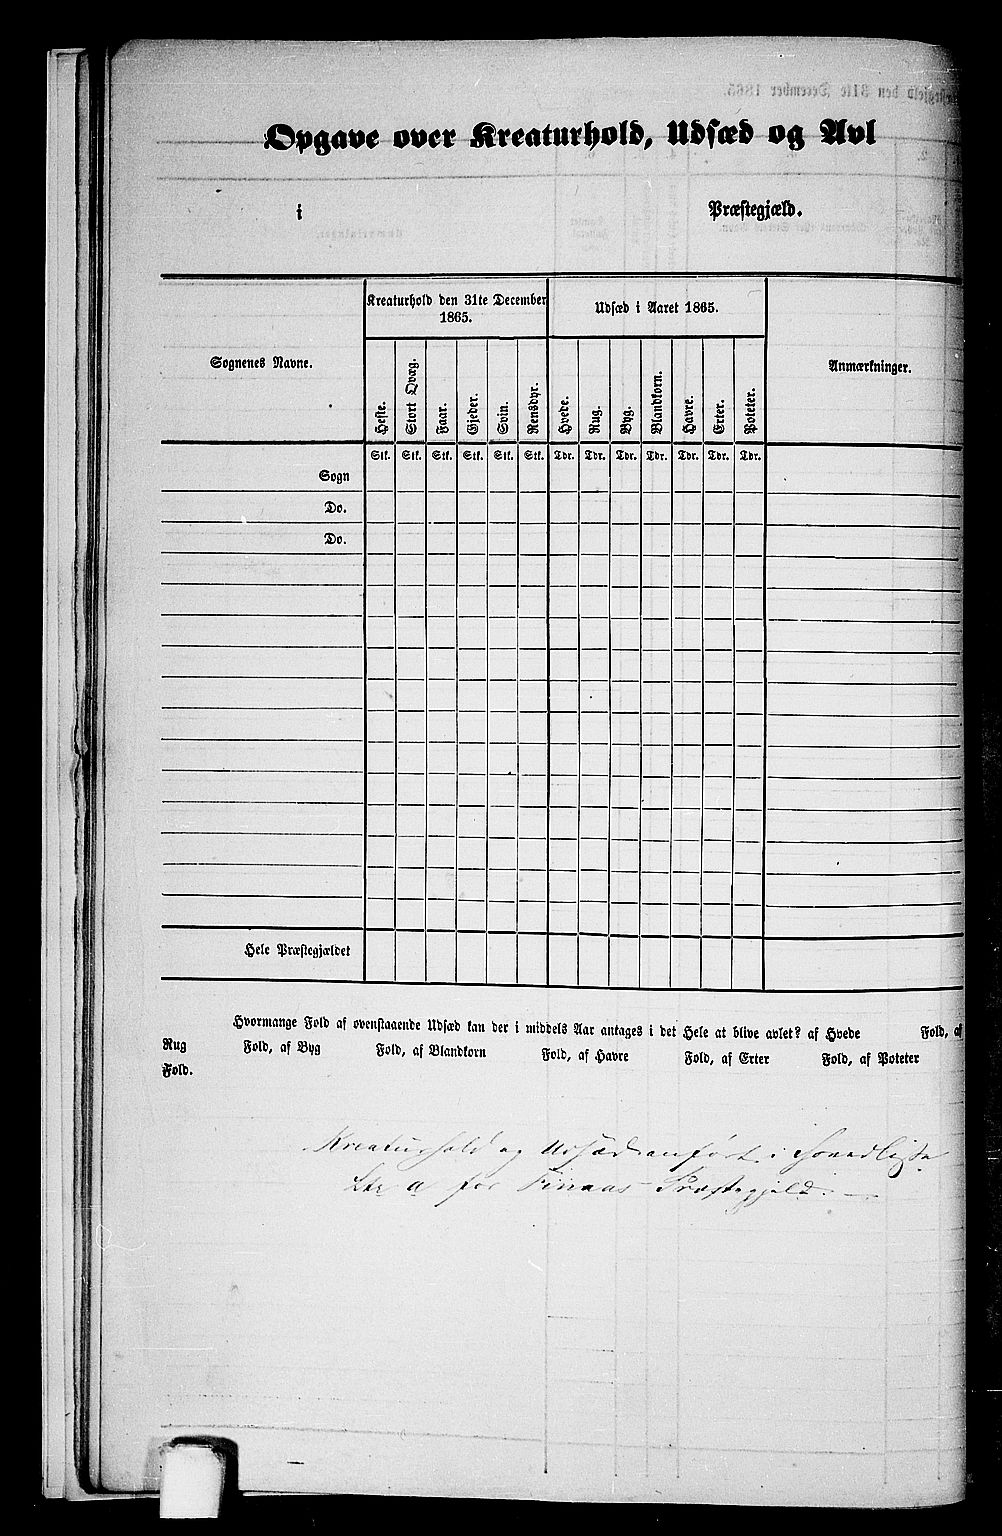 Opgave over Kreaturhold, Udsæd og Avl
i Præstegjæld.
Sognenes Navne.
Kreaturhold den 31te December
1865.
Udsæd i Aaret 1865.
Anmærkninger.
Heste.
Stort Qvæg.
Faar.
Gjeder.
Svin.
Rensdyr.
Hvede.
Rug.
Byg.
Blandkorn.
Havre.
Erter.
Poteter.
Stk. Stk. Stk. Stk. Stk. Stk. Tdr. Tdr. Tdr. Tdr. Tdr. Tdr. Tdr.
Sogn
Do.
Do.
Hele Præstegjældet
Hvormange Fold af ovenstaaende Udsæd kan der i middels Aar antages i det Hele at blive avlet? af Hvede Fold, af
Rug Fold, af Byg Fold, af Blandkorn Fold, af Havre Fold, af Erter Fold, af Poteter
Fold.
Kreaturhold og Udsæd anført i Hovedliste
Ltr a for Finaas Præstegjeld.